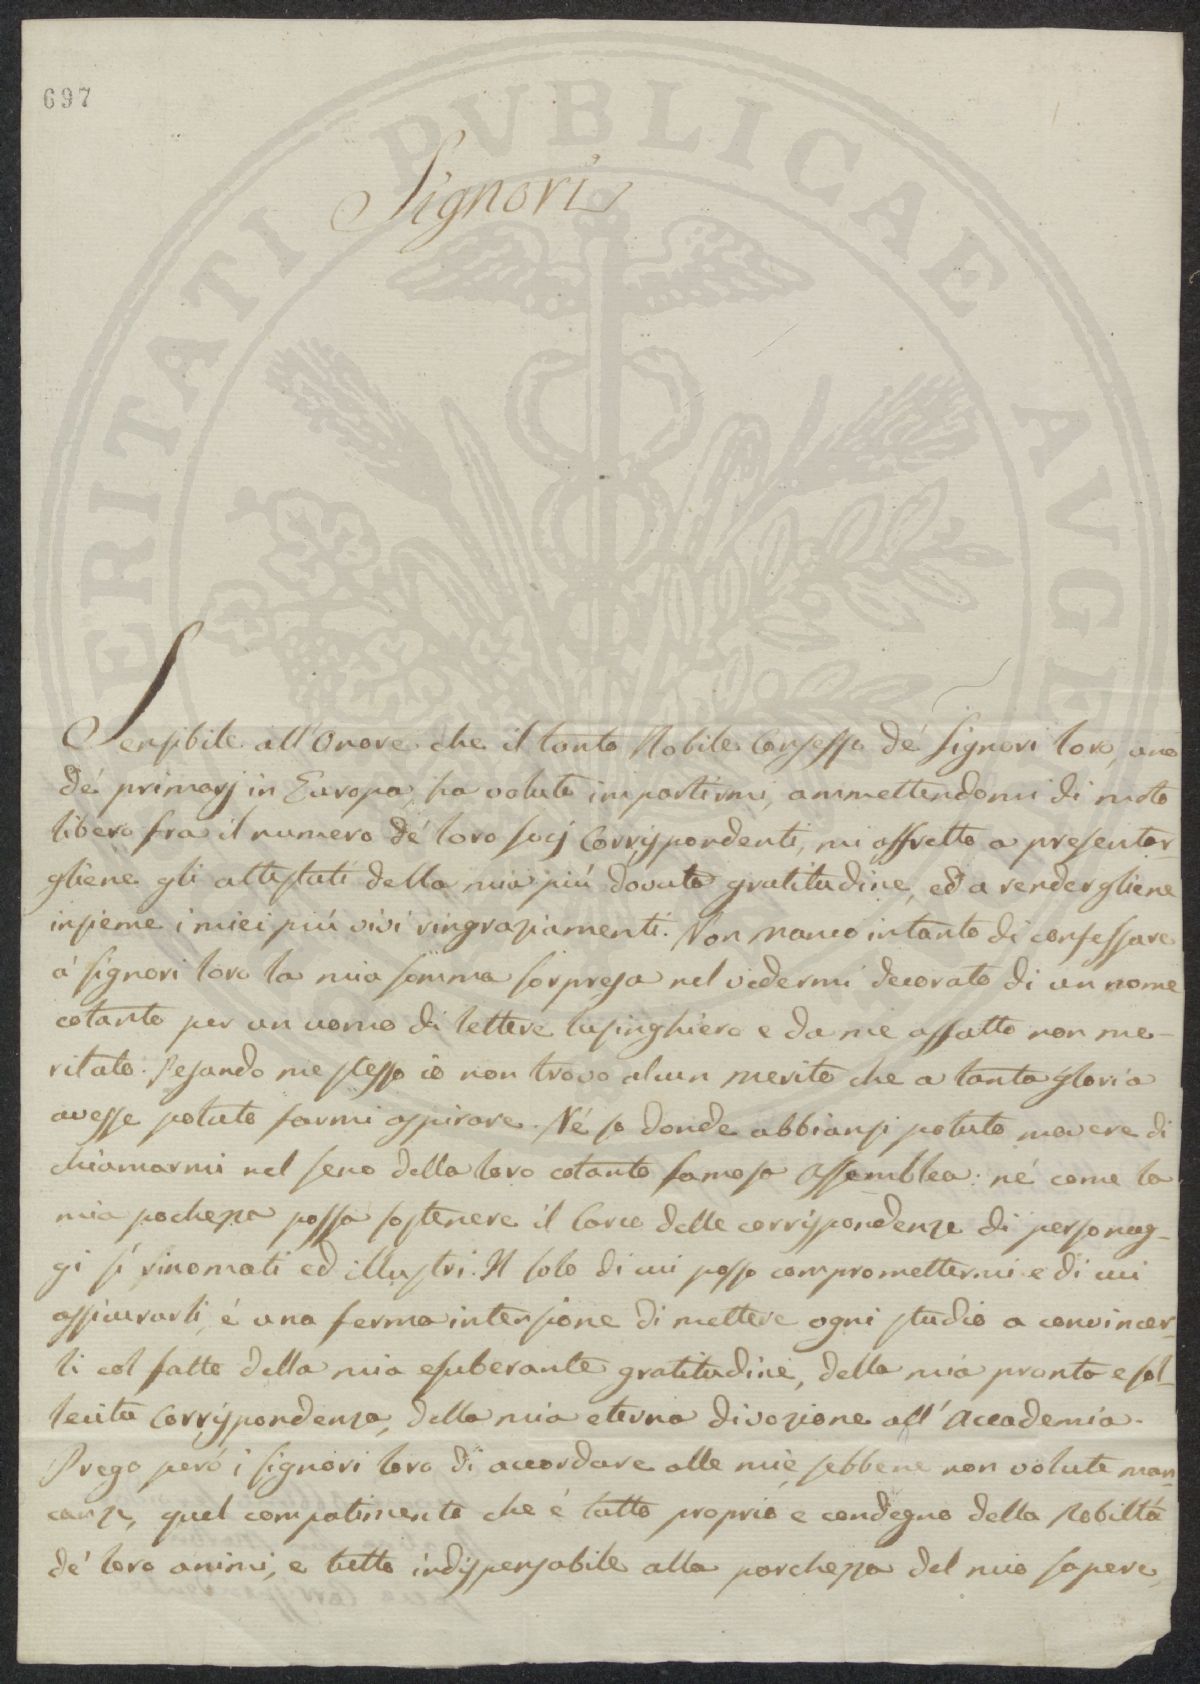 697
PVBLICAE
ERITATI
AVGE
Signori
Sensibile all'Onore che il tanto Nobile Consesso de' Signori loro, uno
de' primarj in Europa, ha voluto impartirmi, ammettendomi di moto
libero fra il numero de' loro socj Corrispondenti, mi affretto a presentar-
gliene gli attestati della mia più dovuta gratitudine, ed a rendergliene
insieme i miei più vivi ringraziamenti. Non manco intanto di confessare
a' signori loro la mia somma sorpresa nel vedermi decorato di un nome
cotanto per un uomo di lettere lusinghiero e da me affatto non me-
ritato. Pesando me stesso io non trovo alcun merito che a tanta gloria
avesse potuto farmi aspirare. Né so donde abbiansi potuto movere di
chiamarmi nel seno della loro cotanto famosa Assemblea: né come la
mia pochezza possa sostenere il Carco delle corrispondenze di personag-
gi sì rinomati ed illustri. Il solo di cui posso compromettermi e di cui
assicurarli, é una ferma intenzione di mettere ogni studio a convincer-
li col fatto della mia esuberante gratitudine, della mia pronta e sol-
lecita Corrispondenza, della mia eterna divozione all'Accademia.
Prego però i signori loro di accordare alle mie, sebbene non volute man-
canze, quel compatimento che é tutto proprio e condegno della Nobiltá
de' loro animi, e tutto indispensabile alla porchezza del mio sapere,